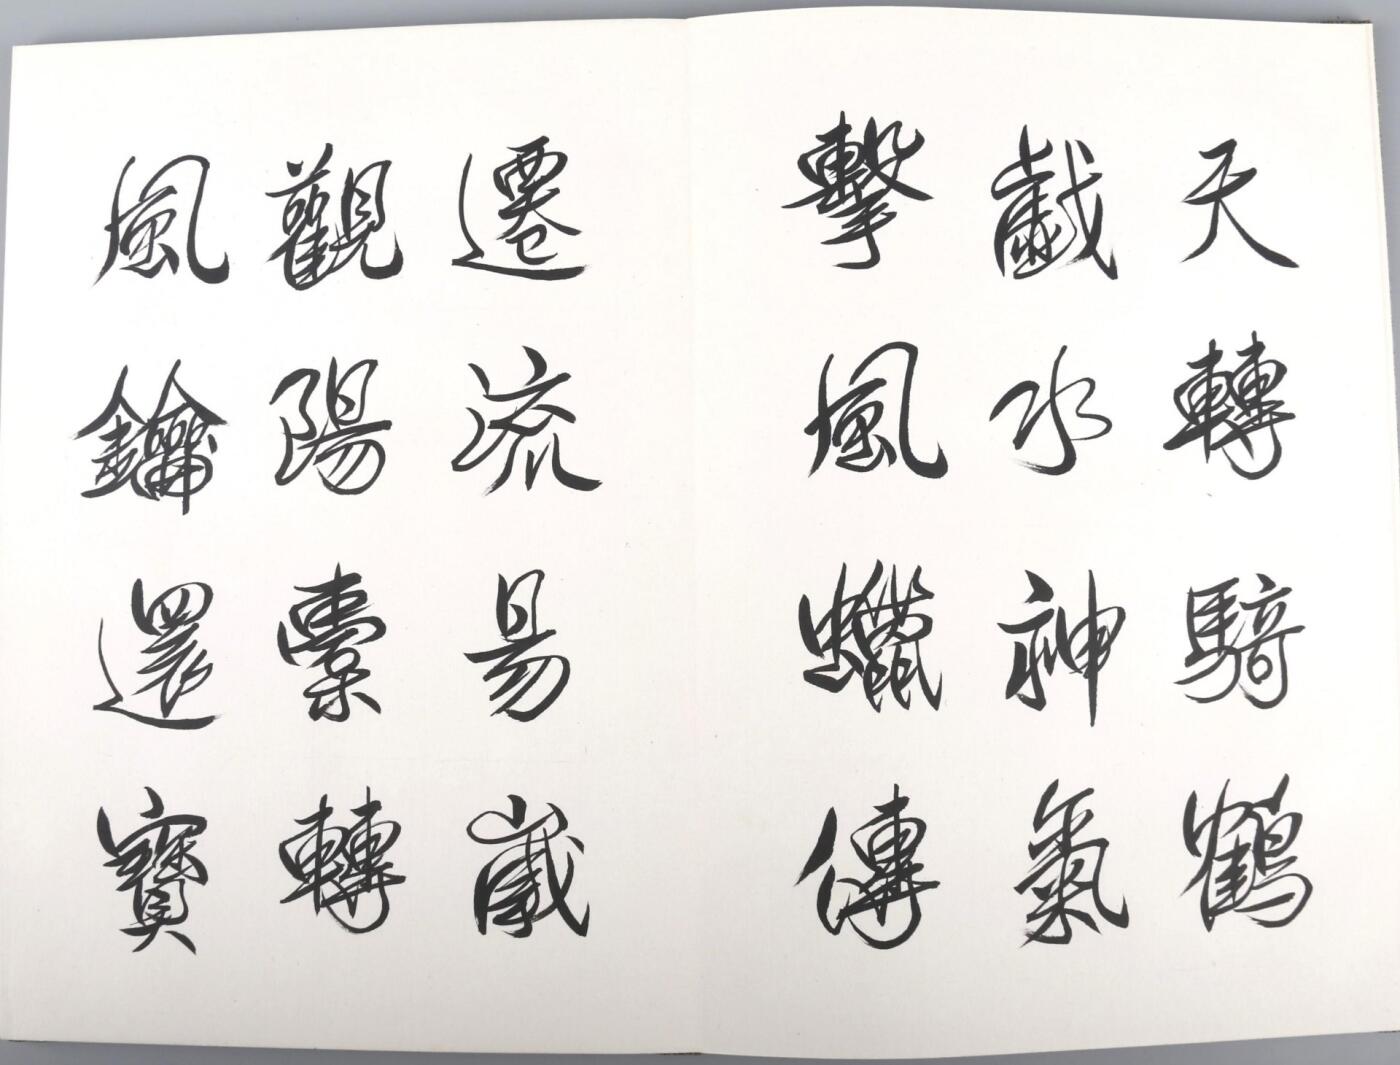 天轉騎鶴
歲水神氣
擊風蠟傳
遷流易歲
觀陽橐轉
風鑰還寶